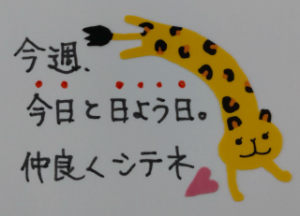 今週、
今日と日よう日。
仲良くシテネ